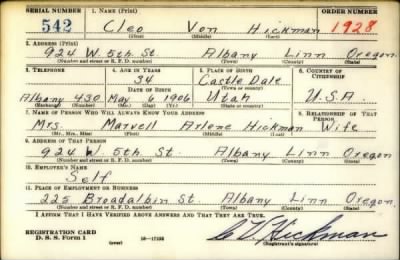 SERIAL NUMBER 1. NAME (Print) ORDER NUMBER
542 Cleo Von Hickman 1928
(First) (Middle) (Last)
2. ADDRESS (Print)
924 W. 5th St. Albany Linn Oregon
(Number and street or R. F. D. number) (Town) (County) (State)
3. TELEPHONE 4. AGE IN YEARS 5. PLACE OF BIRTH 6. COUNTRY OF CITIZENSHIP
34 Castle Dale
DATE OF BIRTH (Town or county)
Albany 430 May 6 1906 Utah U.S.A
(Exchange) (Number) (Mo.) (Day) (Yr.) (State or country)
7. NAME OF PERSON WHO WILL ALWAYS KNOW YOUR ADDRESS 8. RELATIONSHIP OF THAT PERSON
Mrs. Marvell Arlene Hickman Wife
(Mr., Mrs., Miss) (First) (Middle) (Last)
9. ADDRESS OF THAT PERSON
924 W 5th St. Albany Linn Oregon
(Number and street or R. F. D. number) (Town) (County) (State)
10. EMPLOYER'S NAME
Self
11. PLACE OF EMPLOYMENT OR BUSINESS
225 Broadalbin St. Albany Linn Oregon
(Number and street or R. F. D. number) (Town) (County) (State)
I AFFIRM THAT I HAVE VERIFIED ABOVE ANSWERS AND THAT THEY ARE TRUE.
REGISTRATION CARD
D. S. S. Form 1 (over) 16—17105 C V Hickman
(Registrant's signature)